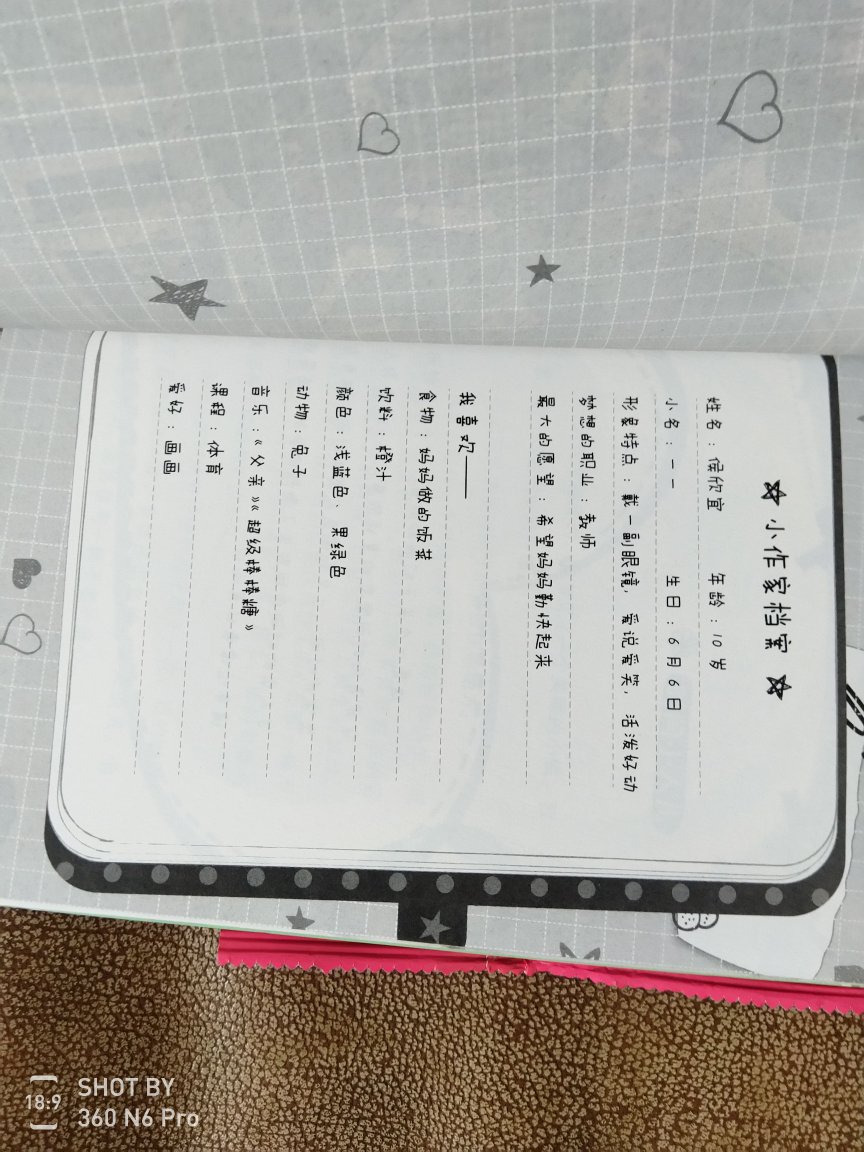 ☆ 小作家档案 ☆
姓名：侯欣宜 年龄：10岁
小名：一一 生日：6月6日
形象特点：戴一副眼镜，爱说爱笑，活泼好动
梦想的职业：教师
最大的愿望：希望妈妈勤快起来
我喜欢——
食物：妈妈做的饭菜
饮料：橙汁
颜色：浅蓝色、果绿色
动物：兔子
音乐：《父亲》《超级棒棒糖》
课程：体育
爱好：画画
18:9 SHOT BY
360 N6 Pro